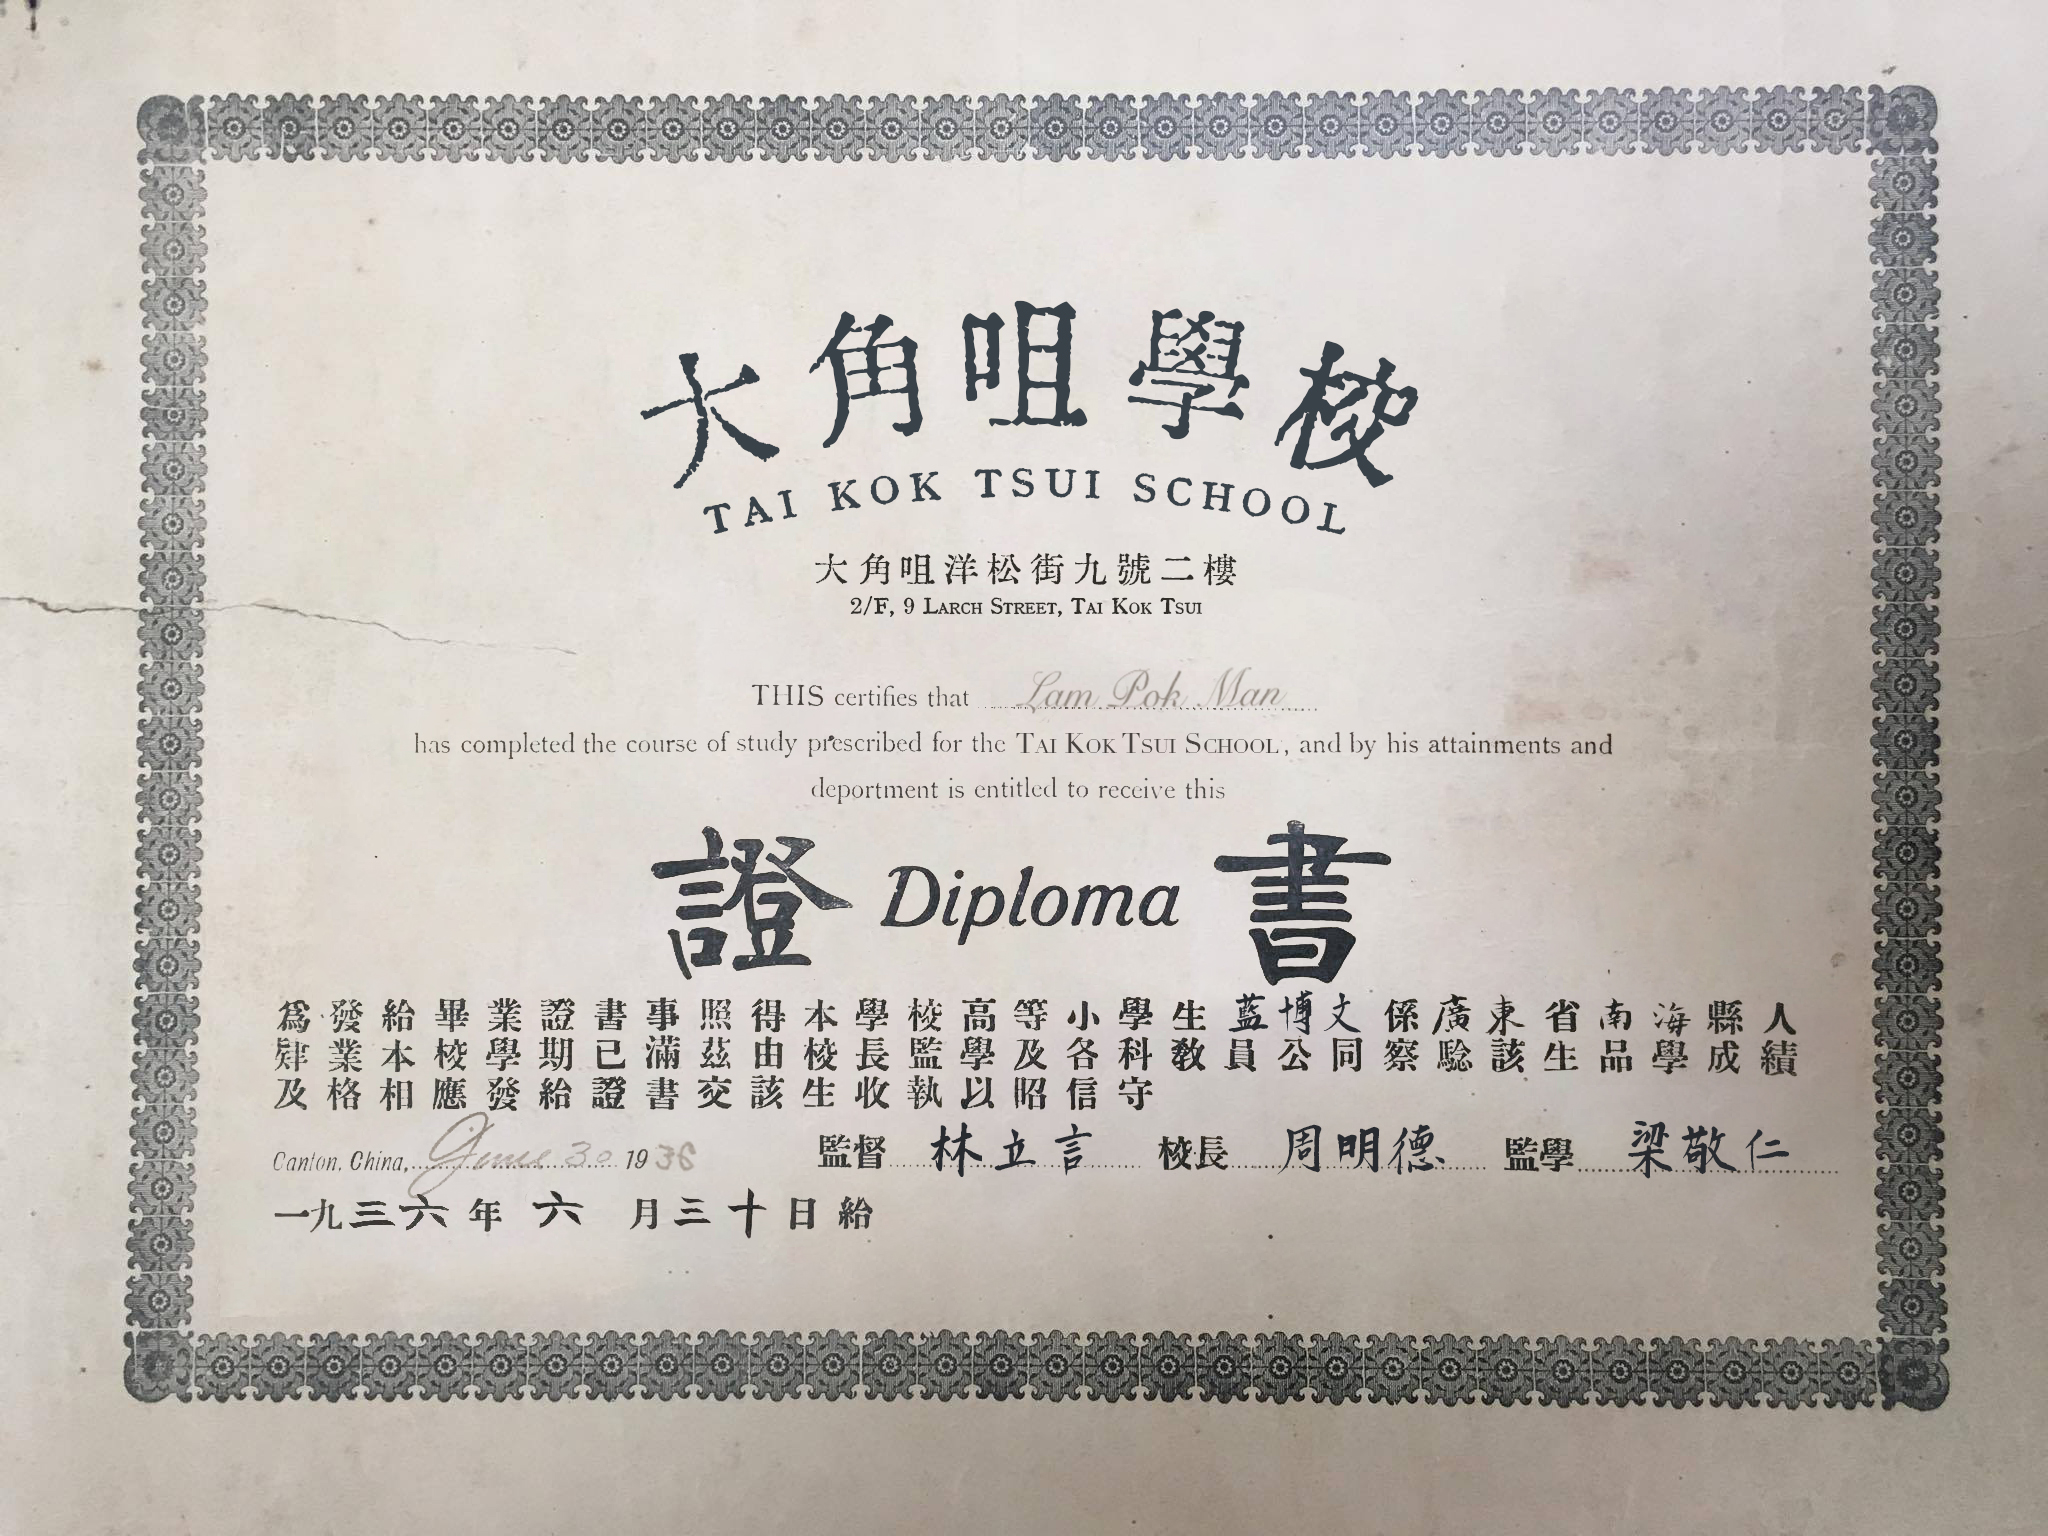 大角咀學校
TAI KOK TSUI SCHOOL
大角咀洋松街九號二樓
2/F, 9 LARCH STREET, TAI KOK TSUI
THIS certifies that Lam Pok Man
has completed the course of study prescribed for the TAI KOK TSUI SCHOOL, and by his attainments and
deportment is entitled to receive this
證 Diploma 書
爲發給畢業證書事照得本學校高等小學生藍博文係廣東省南海縣人
肄業本校學期已滿茲由校長監學及各科教員公同察驗該生品學成績
及格相應發給證書交該生收執以昭信守
Canton, China, June 30 1936 監督 林立言 校長 周明德 監學 梁敬仁
一九三六年六月三十日給